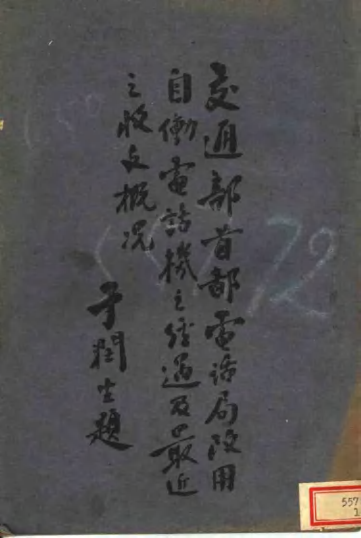 交通部首都電話局改用
自働電話機之經過及最近
之收支概况
于潤生題
72
557
1